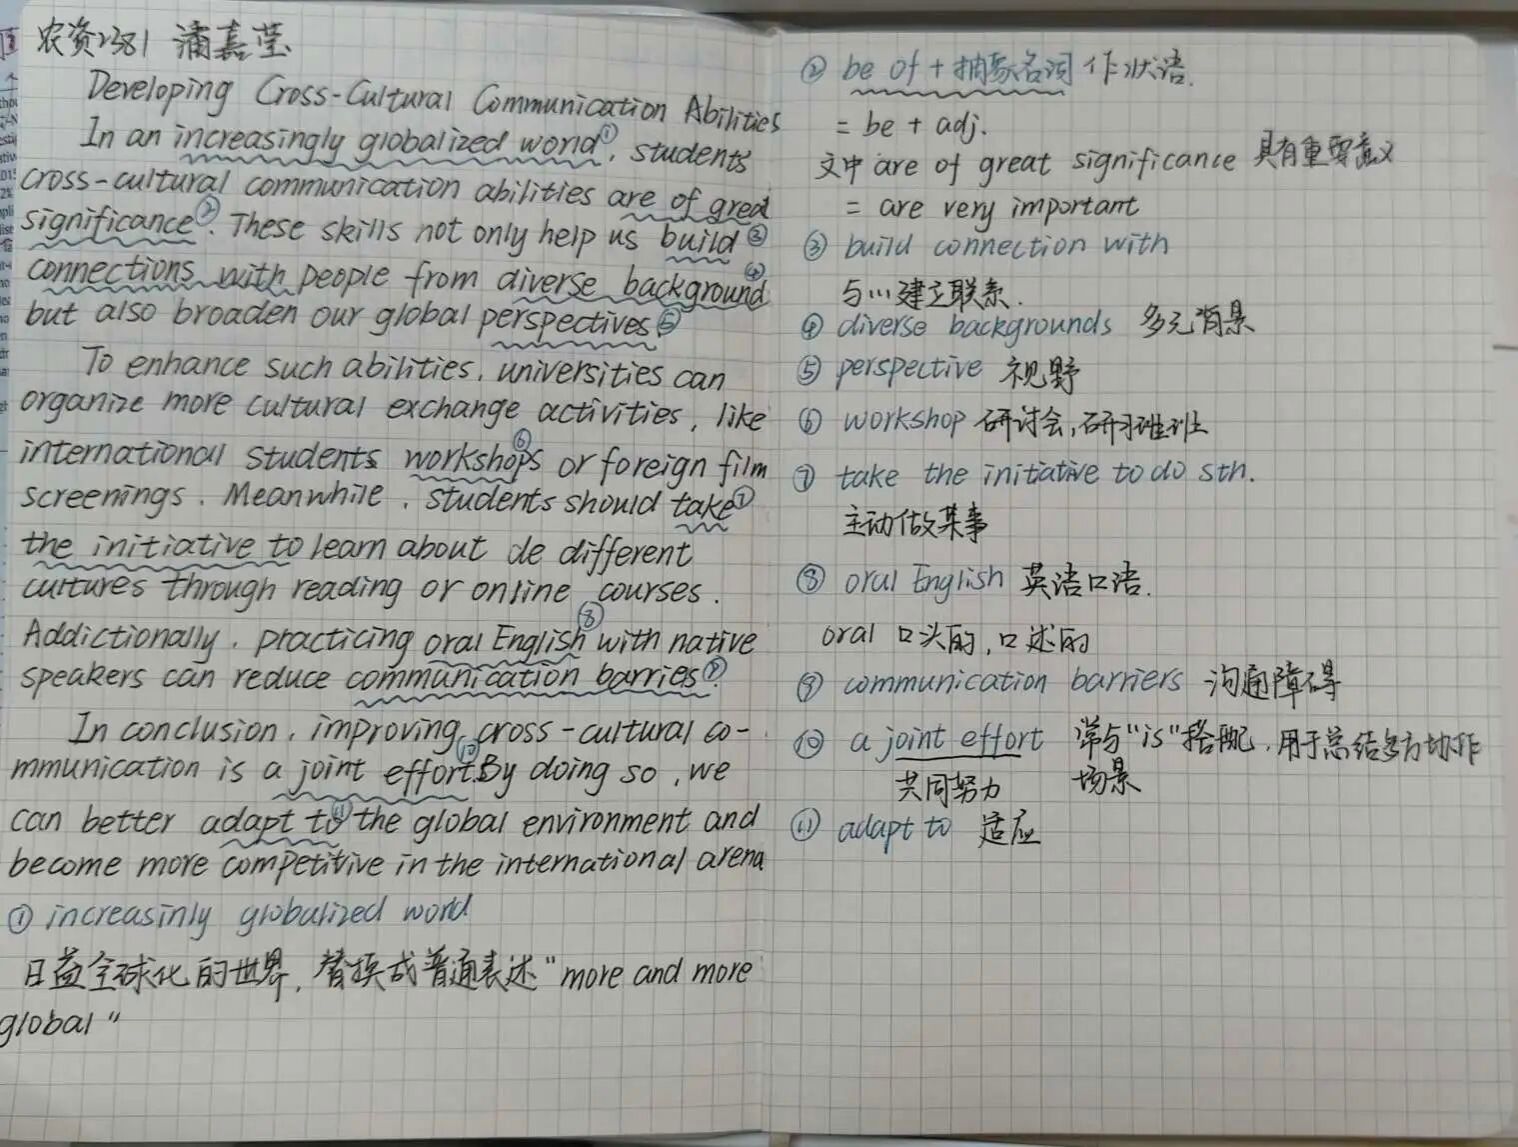 农资2381 蒲嘉莹
Developing Cross-Cultural Communication Abilities
In an increasingly globalized world①, students'
cross-cultural communication abilities are of great
significance②. These skills not only help us build③
connections with people from diverse background④
but also broaden our global perspectives⑤
To enhance such abilities, universities can
organize more cultural exchange activities, like
international students workshops⑥ or foreign film
screenings. Meanwhile, students should take⑦
the initiative to learn about de different
cultures through reading or online courses.
Addictionally, practicing oral English⑧ with native
speakers can reduce communication barries⑨.
In conclusion, improving cross-cultural co-
mmunication is a joint effort⑩. By doing so, we
can better adapt to⑪ the global environment and
become more competitive in the international arena
① increasinly globalized world
日益全球化的世界, 替换成普通表达"more and more
global"
② be of + 抽象名词 作状语.
= be + adj.
文中 are of great significance 具有重要意义
= are very important
③ build connection with
与…建立联系.
④ diverse backgrounds 多元背景
⑤ perspective 视野
⑥ workshop 研讨会,研习班
⑦ take the initiative to do sth.
主动做某事
⑧ oral English 英语口语.
oral 口头的,口述的
⑨ communication barriers 沟通障碍
⑩ a joint effort 常与"is"搭配,用于总结多方协作
共同努力 场景
⑪ adapt to 适应